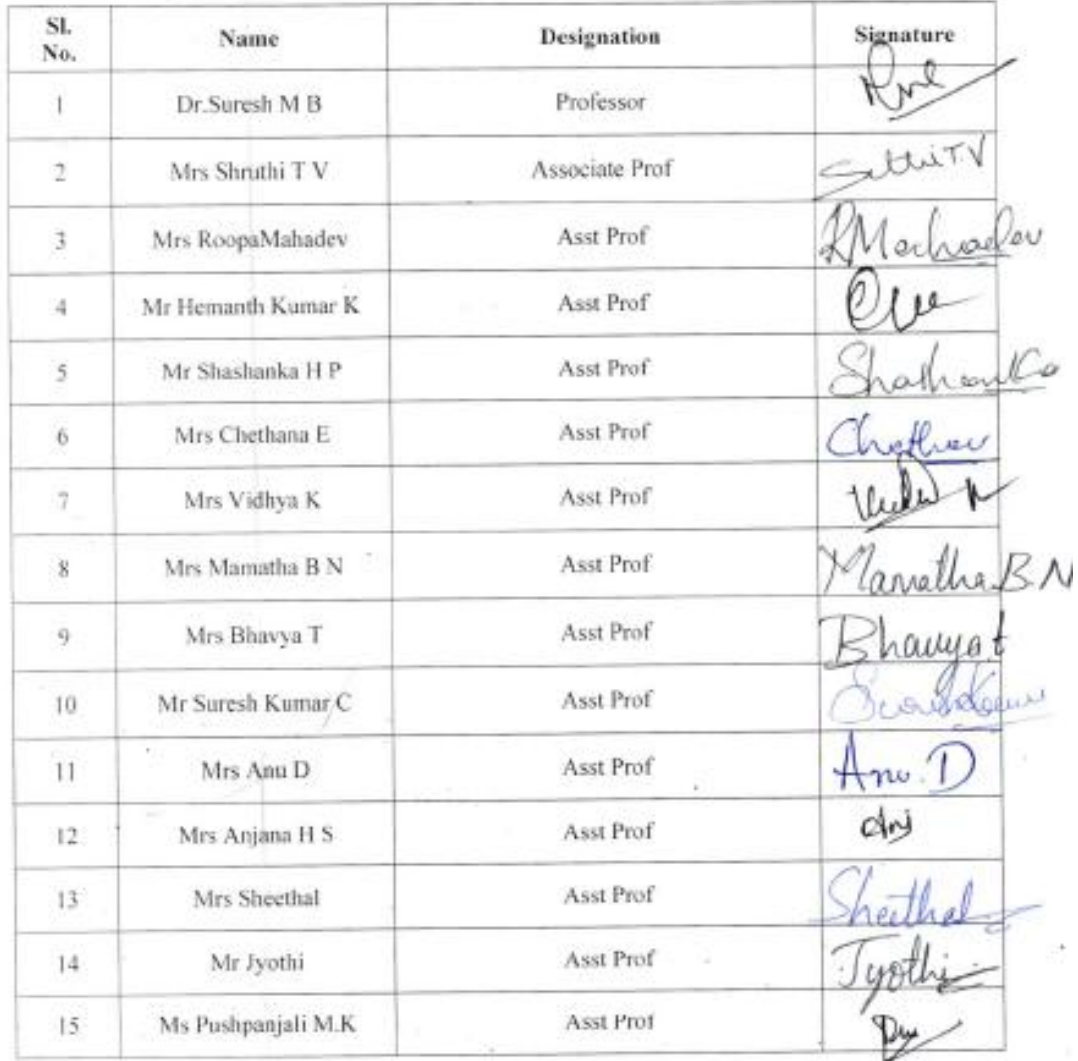 Sl. No. Name Designation Signature
1 Dr.Suresh M B Professor
2 Mrs Shruthi T V Associate Prof
3 Mrs RoopaMahadev Asst Prof RMahadev
4 Mr Hemanth Kumar K Asst Prof
5 Mr Shashanka H P Asst Prof Shashanka
6 Mrs Chethana E Asst Prof
7 Mrs Vidhya K Asst Prof
8 Mrs Mamatha B N Asst Prof Mamatha.B.N
9 Mrs Bhavya T Asst Prof Bhavya.t
10 Mr Suresh Kumar C Asst Prof
11 Mrs Anu D Asst Prof Anu.D
12 Mrs Anjana H S Asst Prof Anj
13 Mrs Sheethal Asst Prof Sheethal
14 Mr Jyothi Asst Prof Jyothi
15 Ms Pushpanjali M.K Asst Prof